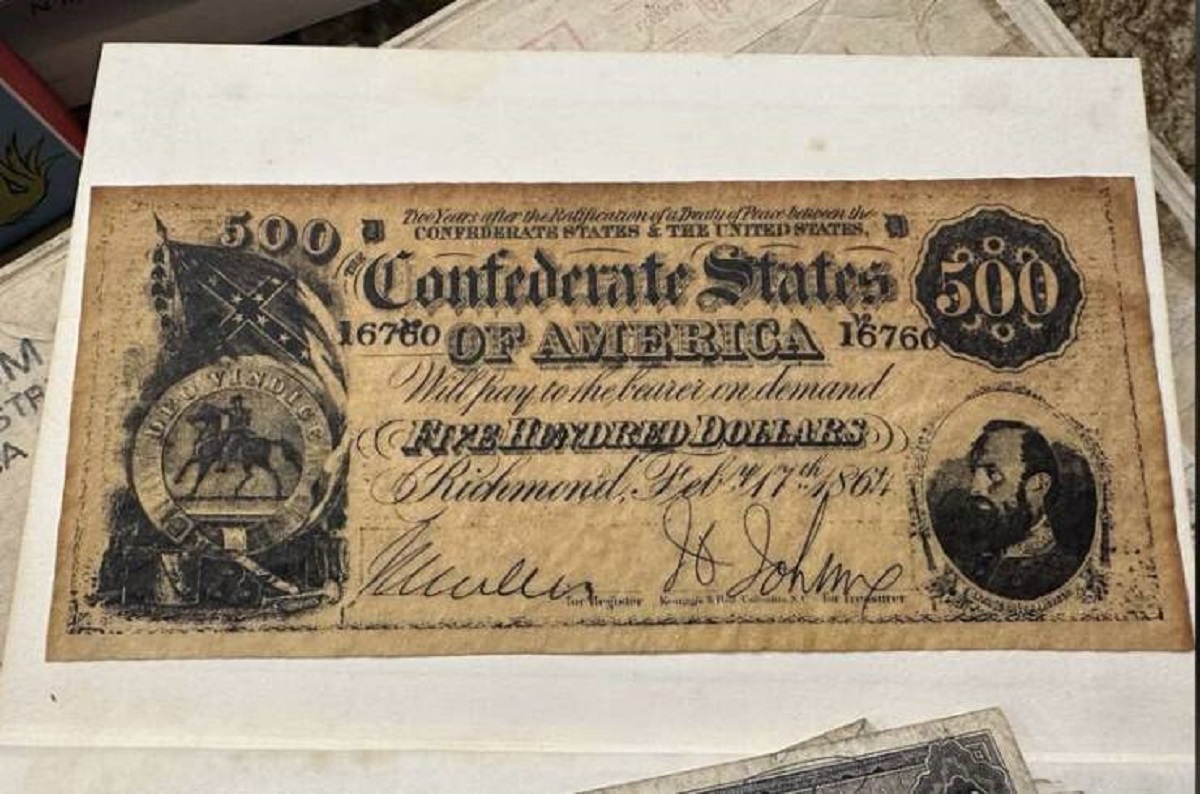 Two Years after the Ratification of a Treaty of Peace between the
500 D CONFEDERATE STATES & THE UNITED STATES, D
THE Confederate States 500
16760 No OF AMERICA No 16760
Will pay to the bearer on demand
DEO VINDICE
FIVE HUNDRED DOLLARS
Richmond, Feby. 17th 1864
H Johnson
for Register Keatinge & Ball Columbia, S.C. for Treasurer
M
STR
A